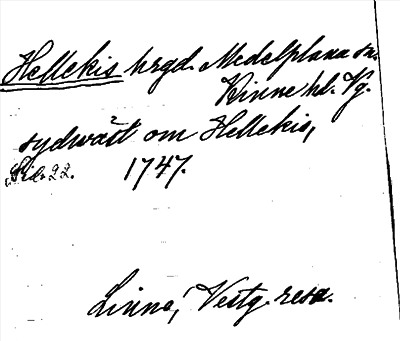 Hellekis hrgd. Medelplana sn.
Kinne hd. Vg.
sydwäst om Hellekis,
Sid. 22. 1747.
Linné, Vestg. resa.